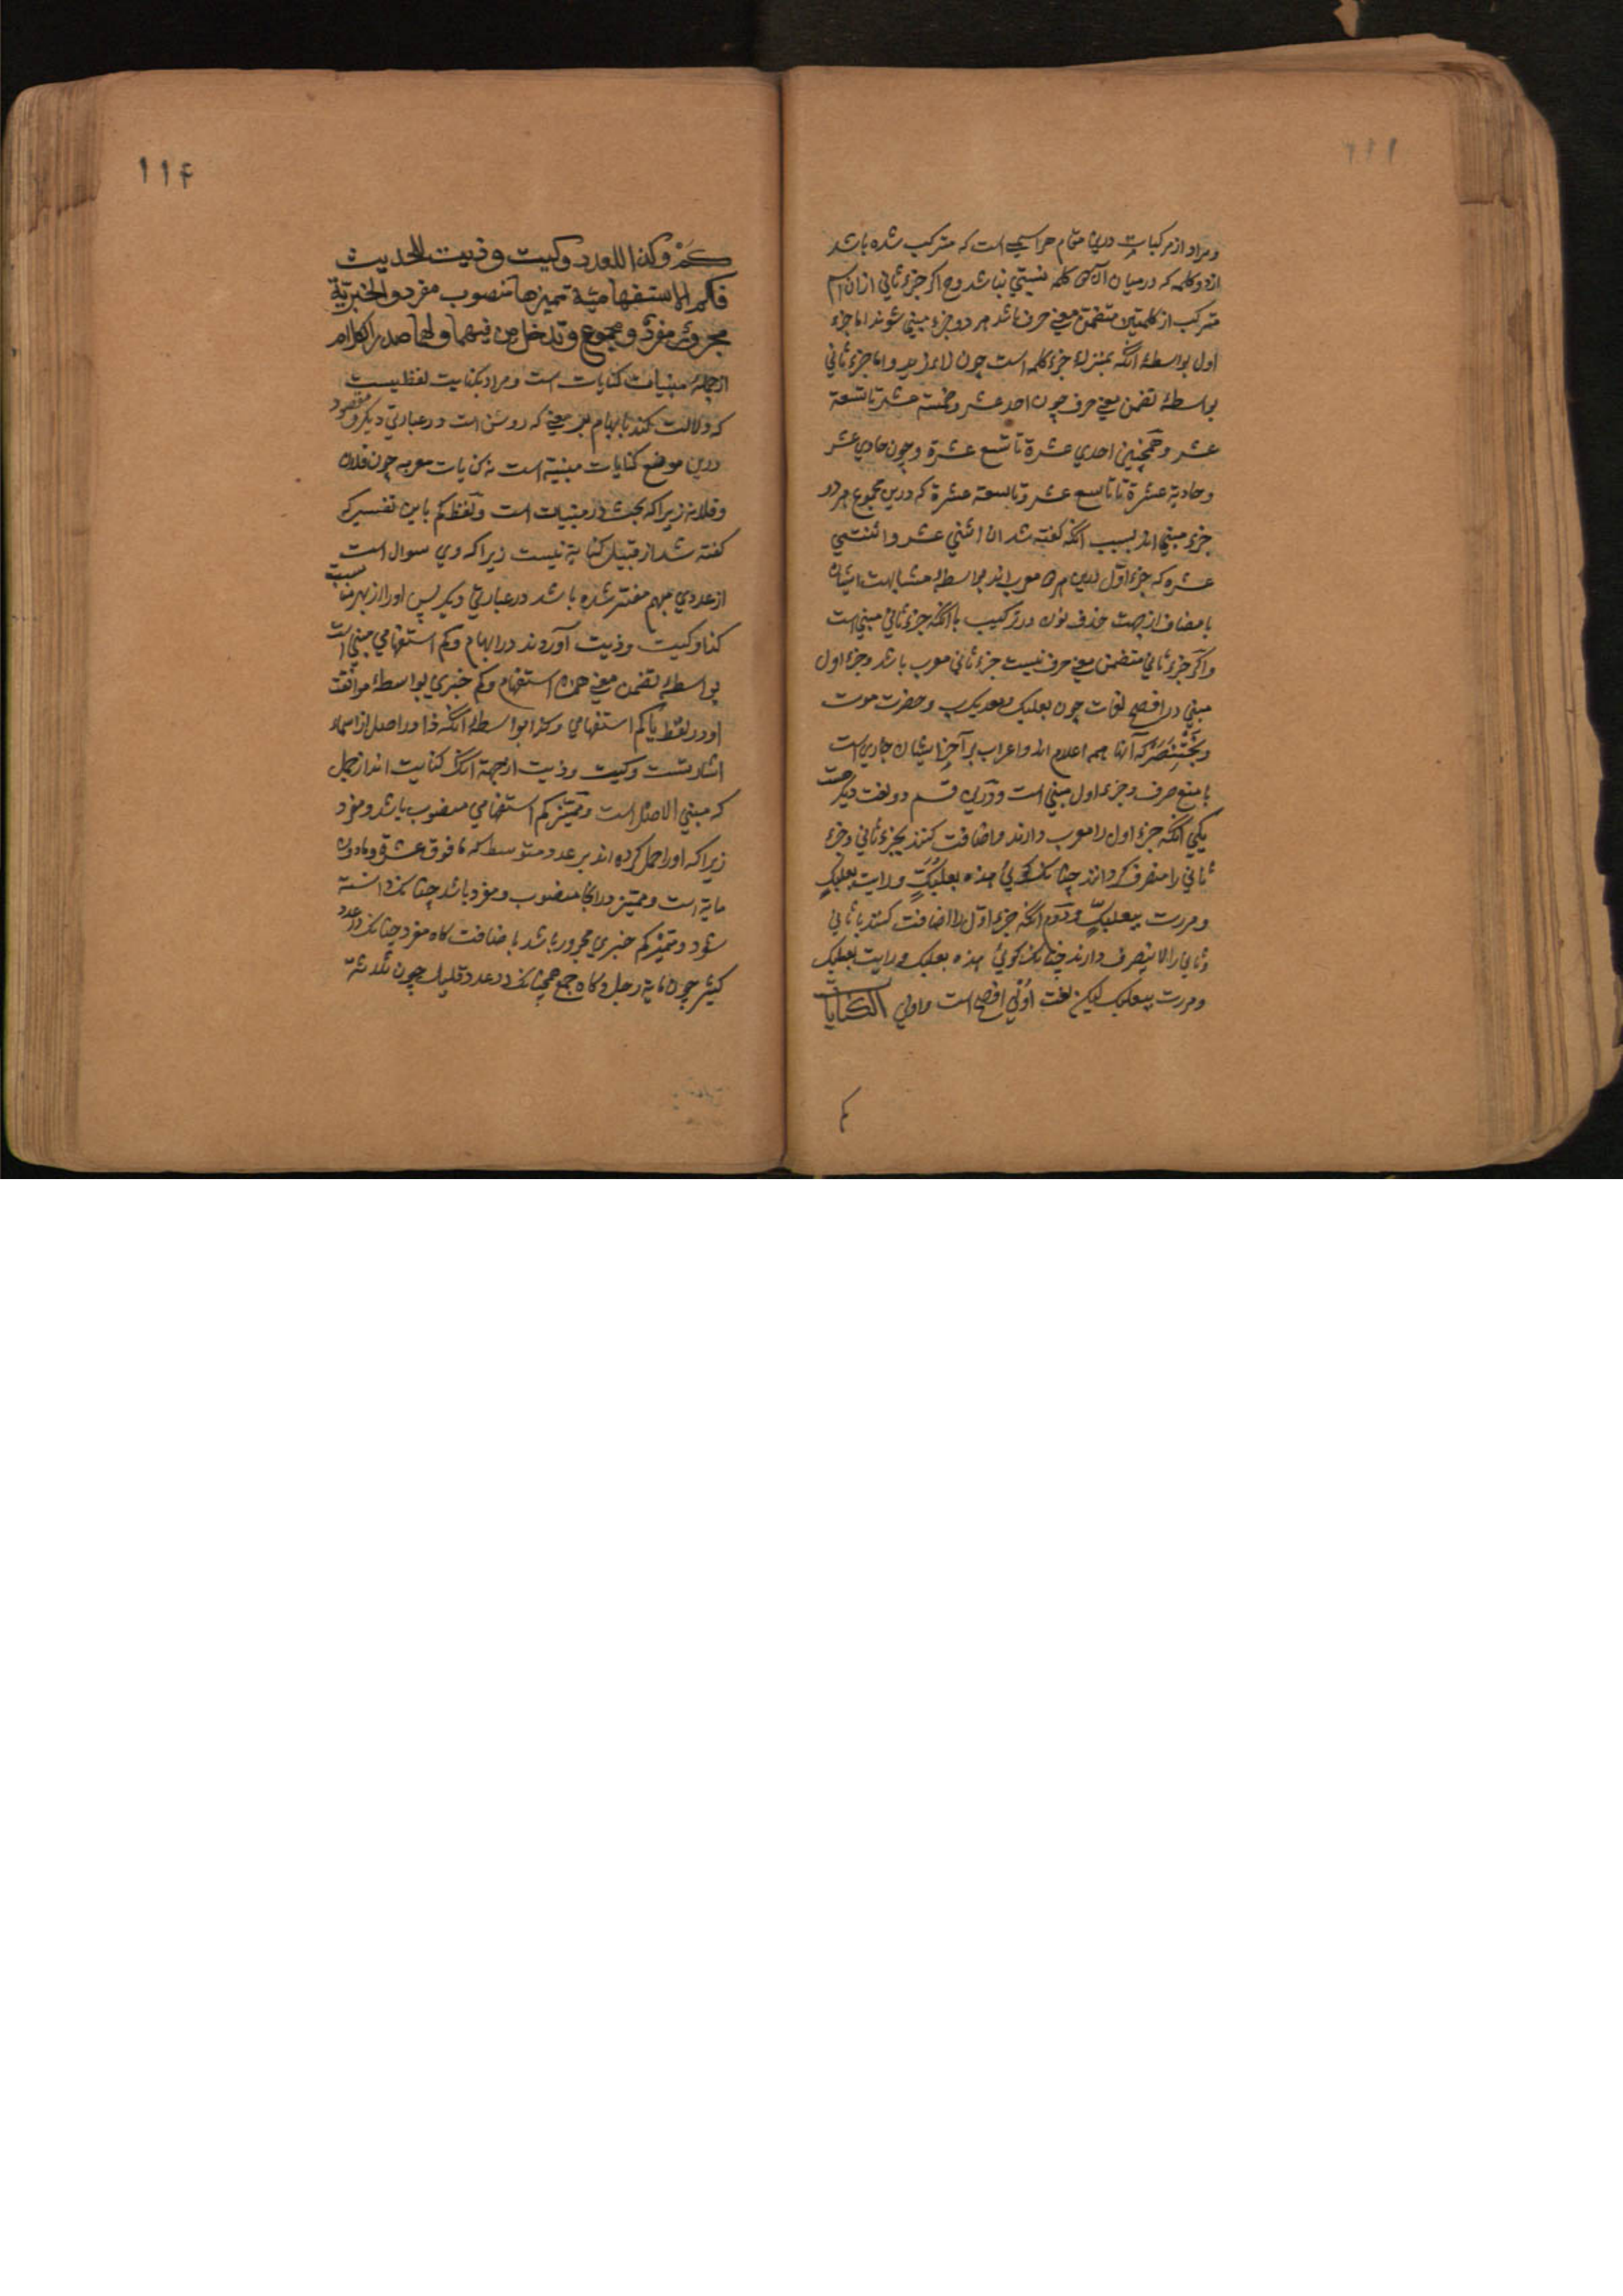 ١١١
ومراد از مرکبات درین مقام هر اسمی است که مترکب شده باشد
از دو کلمه که درمیان آن دو کلمه نسبتی نباشد وح اکر جزء ثانی ازان اسم
مترکب از کلمتین متضمن معنی حرف باشد هر دو جزء مبنی شوند اما جزء
اول بواسطهٔ انکه بمنزلهٔ جزء کلمه است چون زاء زید واما جزء ثانی
بواسطهٔ تضمن معنی حرف چون احد عشر وخمسة عشر تا تسعة
عشر وهمچنین احدي عشرة تا تسع عشرة وچون حادي عشر
وحادیة عشرة تا تاسع عشر وتاسعة عشرة که درین مجموع هر دو
جزء مبنی اند بسبب انکه کفته شد الا اثني عشر واثنتي
عشره که جزء اول ازین هر دو معرب اند بواسطهٔ مشابهت ایشان
با مضاف از جهت حذف نون در ترکیب با انکه جزء ثانی مبنی است
واکر جزء ثانی متضمن معنی حرف نیست جزء ثانی معرب باشد وجزء اول
مبنی در افصح لغات چون بعلبک ومعدیکرب وحضرت موت
وبختنصر که آنها همه اعلام اند واعراب بر آخر ایشان جاریست
با منع صرف وجزء اول مبنی است ودرین قسم دو لغت دیکر هست
یکی انکه جزء اول را معرب دارند واضافت کنند بجزء ثانی وجزء
ثانی را منصرف کردانند چنانک کوئی هذه بعلبکٍ ورایت بعلبکٍ
ومررت ببعلبکٍ ودوم انکه جزء اول را اضافت کنند بثانی
وثانی را لاینصرف دارند چنانک کوئی هذه بعلبک ورایت بعلبک
ومررت ببعلبک لیکن لغت اولی افصح است واولی الکنایات
کم
١١۴
کم وکذا للعدد وکیت وذیت للحدیث
فکم الاستفهامیة تمیزها منصوب مفرد والخبریّة
مجرور مفرد ومجموع وتدخل من فیهما ولها صدر الکلام
از جملهٔ مبنیات کنایات است ومراد بکنایت لفظیست
که دلالت کند بابهام بر معنی که روشن است در عبارتی دیکر ومقصود
درین موضع کنایات مبنیة است نه کنایات معربه چون فلان
وفلانة زیراکه بحث در مبنیات است ولفظ کم باین تفسیر که
کفته شد از قبیل کنایة نیست زیراکه وي سوال است
از عددي مبهم مفسر شده باشد در عبارتی دیکر پس اورا از بهر مناسبت
کذا وکیت وذیت آوردند در ابهام وکم استفهامی مبنی است
بواسطهٔ تضمن معنی همزه استفهام وکم خبري بواسطهٔ موافقت
او در لفظ با کم استفهامی وکذا بواسطهٔ انکه ذا در اصل از اسماء
اشارتست وکیت وذیت ازجهة انک کنایت اند از جمل
که مبنی الاصل است وممیّز کم استفهامی منصوب باشد ومفرد
زیراکه اورا حمل کرده اند بر عدد متوسط که ما فوق عشرة وما دون
مایة است وممیز درانجا منصوب ومفرد باشد چنانک دانسته
شود وممیز کم خبري مجرور باشد باضافت کاه مفرد چنانک در عدد
کثیر چون مایة رجل وکاه جمع همچنانک در عدد قلیل چون ثلاثة